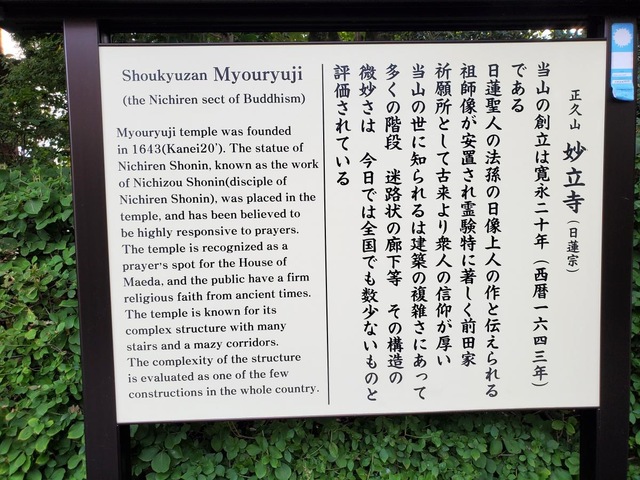 Shoukyuzan Myouryuji
(the Nichiren sect of Buddhism)
Myouryuji temple was founded
in 1643(Kanei20'). The statue of
Nichiren Shonin, known as the work
of Nichizou Shonin(disciple of
Nichiren Shonin), was placed in the
temple, and has been believed to
be highly responsive to prayers.
The temple is recognized as a
prayer's spot for the House of
Maeda, and the public have a firm
religious faith from ancient times.
The temple is known for its
complex structure with many
stairs and a mazy corridors.
The complexity of the structure
is evaluated as one of the few
constructions in the whole country.
正久山 妙立寺（日蓮宗）
当山の創立は寛永二十年（西暦一六四三年）
である
日蓮聖人の法孫の日像上人の作と伝えられる
祖師像が安置され霊験特に著しく前田家
祈願所として古来より衆人の信仰が厚い
当山の世に知られるは建築の複雑さにあって
多くの階段 迷路状の廊下等 その構造の
微妙さは 今日では全国でも数少ないものと
評価されている